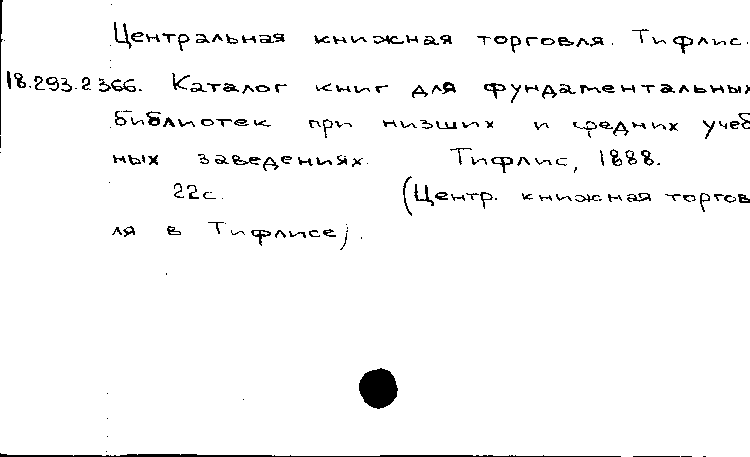 Центральная книжная торговля. Тифлис.
18.293.2366. Каталог книг для фундаментальных
библиотек при низших и средних учеб
ных заведениях. Тифлис, 1888.
22с. (Центр. книжная торгов
ля в Тифлисе).